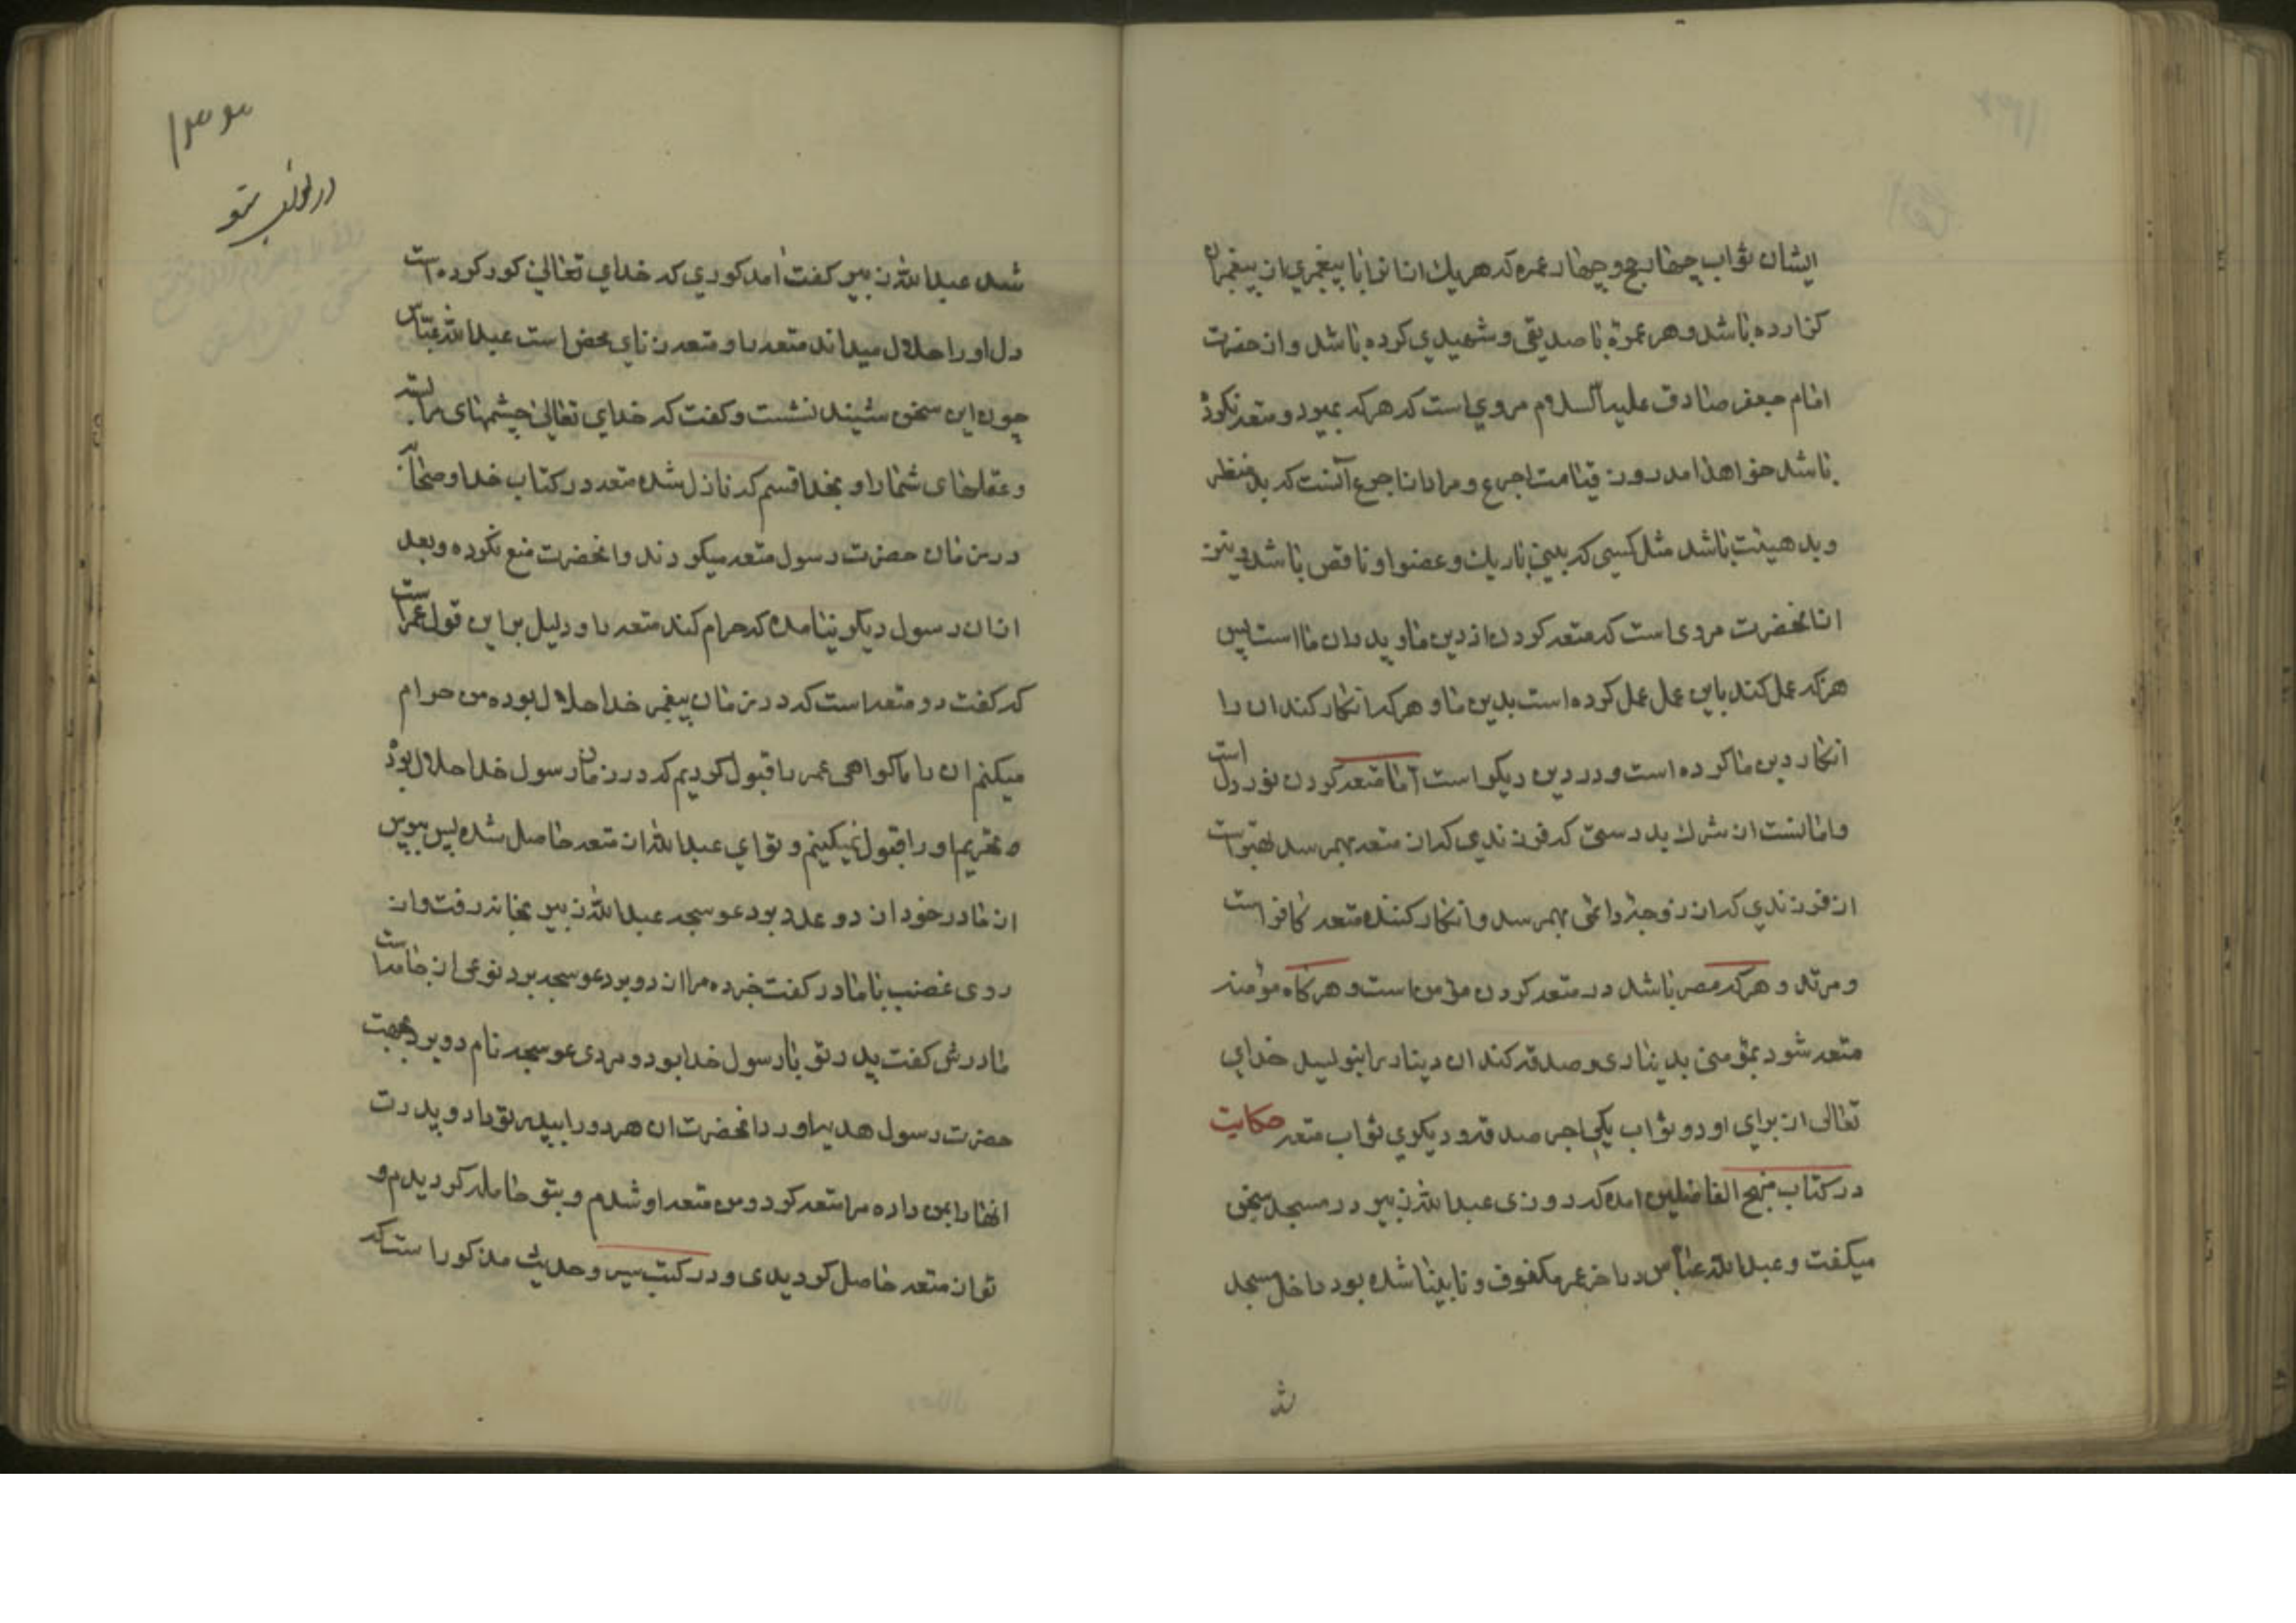 ایشان ثواب چهار حج و چهار عمره که هریك ازانرا با پیغمبری از پیغمبران
کزارده باشد و هر عمرۀ با صدیقی و شهیدی کرده باشد و از حضرت
امام جعفر صادق علیه السلام مرویست که هرکه بمیرد و متعه نکرده
باشد خواهد امد روز قیامت اجدع و مراد از اجدع آنست که بدمنظر
و بدهیئت باشد مثل کسی که بینی باریك و عضو او ناقص باشد و نیز
از انحضرت مروی است که متعه کردن از دین ما و پدران ما است پس
هرکه عمل کند باین عمل عمل کرده است بدین ما و هرکه انکار کند ان را
انکار دین ما کرده است و در دین دیکر است اما متعه کردن نور دل است
و امانست از شرك بدرستی که فرزندی که از متعه بهمرسد بهتر است
از فرزندی که از زوجۀ دائمی بهمرسد و انکار کننده متعه کافر است
و مرتد و هرکه مصر باشد در متعه کردن مؤمن است و هرکاه مؤمنه
متعه شود بمؤمنی بدیناری و صدقه کند ان دینار را بنویسد خدای
تعالی از برای او دو ثواب یکی اجر صدقه و دیکری ثواب متعه حکایت
در کتاب منهج الفاضلین امده که روزی عبدالله زبیر در مسجد سخن
میکفت و عبدالله عباس در اخر عمر مکفوف و نابینا شده بود داخل مسجد
شد
۱۳۳
در ثواب متعه
شد عبدالله زبیر کفت امد کوری که خدای تعالی کور کرده است
دل او را حلال میداند متعه را و متعه زنای محض است عبدالله عباس
چون این سخن شنید نشست و کفت که خدای تعالی چشمهای مرا بسته
و عقلهای شما را و بخدا قسم که نازل شده متعه در کتاب خدا و صحابه
در زمان حضرت رسول متعه میکردند و انحضرت منع نکرده و بعد
از ان رسول دیکر نیامده که حرام کند متعه را و دلیل بر این قول عمر است
که کفت دو متعه است که در زمان پیغمبر خدا حلال بوده من حرام
میکنم ان را ما کواهی عمر را قبول کردیم که در زمان رسول خدا حلال بوده
و تحریم او را قبول نمیکنیم و تو ای عبدالله از متعه حاصل شده پس بپرس
از مادر خود از دو عدد برد عوسجه عبدالله زبیر بخانه رفت و از
روی غضب با مادر کفت خبر ده مرا از دو برد عوسجه برد نوعی از جامه است
مادرش کفت پدر تو با رسول خدا بود و مردی عوسجه نام دو برد بجهت
حضرت رسول هدیه اورد انحضرت ان هر دو را بپدر تو داد و پدرت
انها را بمن داده مرا متعه کرد و من متعه او شدم و بتو حامله کردیدم و
تو از متعه حاصل کردیدی و در کتب سیر و حدیث مذکور است که